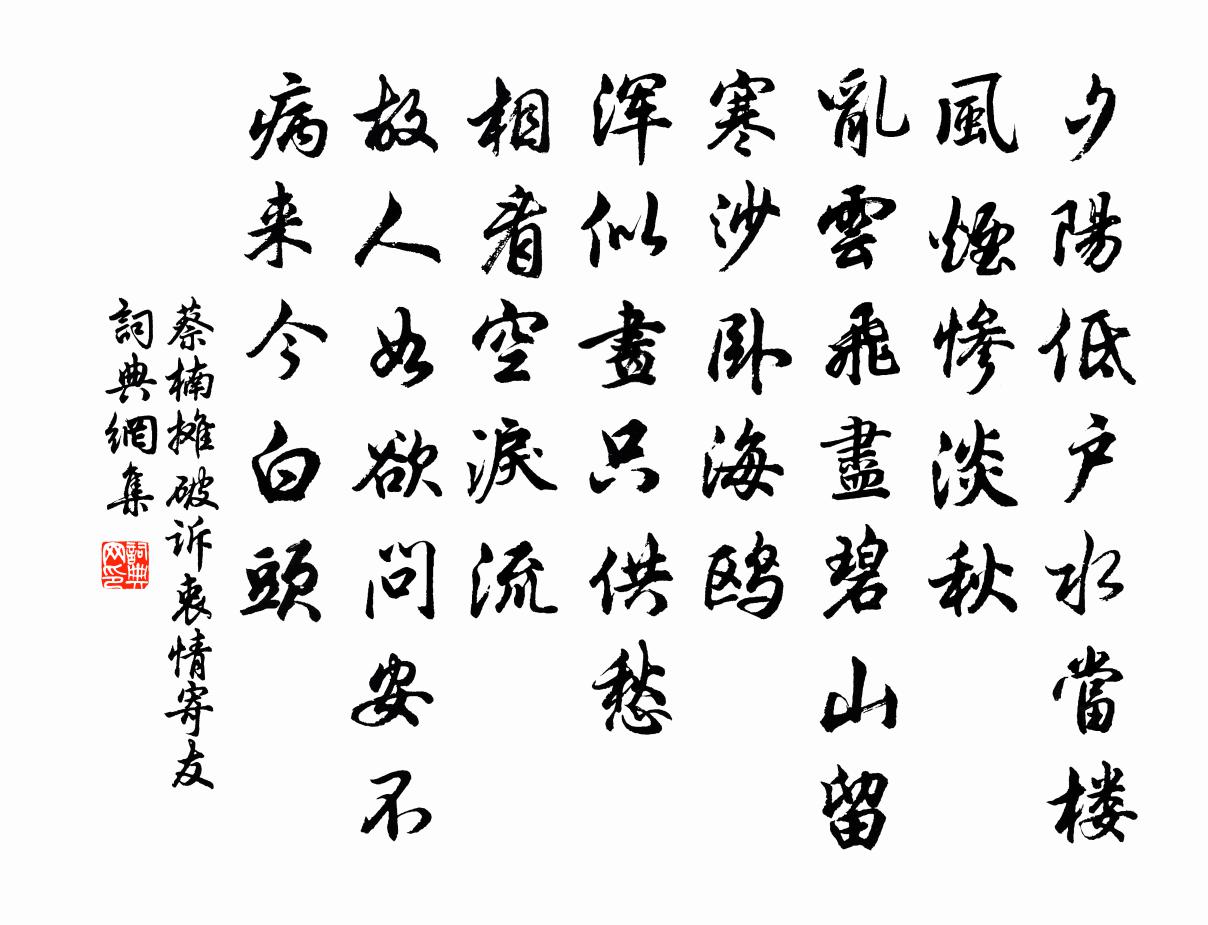 夕陽低户水當楼
風煙惨淡秋
亂雲飛盡碧山留
寒沙卧海鸥
浑似畫只供愁
相看空淚流
故人如欲问安不
病来今白頭
蔡楠摊破诉衷情寄友
詞典網集
詞典网印